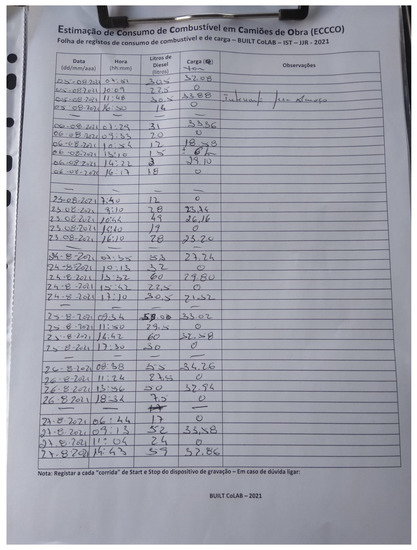 Estimação de Consumo de Combustível em Camiões de Obra (ECCCO)
Folha de registos de consumo de combustível e de carga – BUILT CoLAB – IST – JJR - 2021
Data (dd/mm/aaa) Hora (hh:mm) Litros de Diesel (litros) Carga Observações
05-08-2021 30,5 32.08
05-08-2021 10:09 22,5 0
05-08-2021 11:48 30,5 33.88
05-08-2021 16:30 14 0
—
06-08-2021 07:29 31 33.36
06-08-2021 09:33 20 0
06-08-2021 10:54 12 18.58
06-08-2021 13:10 15
06-08-2021 14:22 29.10
06-08-2021 16:17 18 0
—
—
23-08-2021 7:40 12 0
23-08-2021 9:10 28 23,74
23.08.2021 10:44 49 26,16
23.08.2021 19 0
23.08-2021 16:10 28 23.20
—
24-8-2021 07:35 53 27.24
24-8-2021 10:13 32 0
24-8-2021 13:32 60 29.80
24-8-2021 15:42 22,5 0
24-8-2021 17:10 30,5 21,32
—
25-8-2021 09:34 33.02
25-8-2021 11:50 29,5 0
25-8-2021 14:42 60 32.58
25-8-2021 17:30 30 0
—
26-8-2021 08:58 55 34.26
26-8-2021 11:24 27,5 0
26-8-2021 13:56 50 32.94
26-8-2021 18:34 7.5 0
—
27-8-2021 06:44 17 0
27-8-2021 09:13 52 33,58
27-8-2021 11:04 24 0
27-8-2021 14:43 59 32.86
Nota: Registar a cada “corrida” de Start e Stop do dispositivo de gravação – Em caso de dúvida ligar:
BUILT CoLAB – 2021